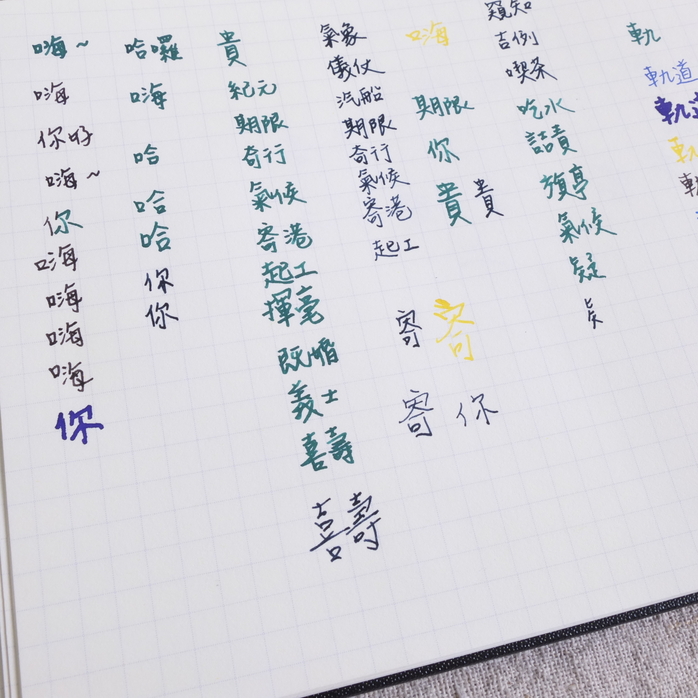 嗨~
嗨
你好
嗨~
你
嗨
嗨
嗨
嗨
你
哈囉
嗨
哈
哈
哈
你
你
貴
紀元
期限
奇行
氣候
寄港
起工
揮毫
既婚
義士
喜壽
喜壽
氣象
儀仗
汽船
期限
奇行
氣候
寄港
起工
寄 寄
寄 你
嗨
期限
你
貴 貴
窺知
吉例
喫茶
吃水
詰責
旗亭
氣候
疑
軌
軌道